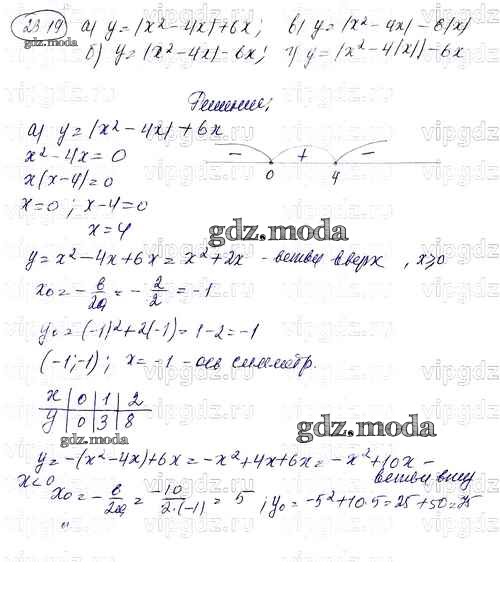 23.19 а) y = |x² - 4x| + 6x; в) y = |x² - 4x| - 8|x|
gdz.moda
б) y = |x² - 4x| - 6x; г) y = |x² - 4|x|| - 6x
Решение;
а) y = |x² - 4x| + 6x
x² - 4x = 0
- + -
x(x-4) = 0
0 4
x = 0; x-4 = 0
x = 4
gdz.moda
y = x² - 4x + 6x = x² + 2x - ветви вверх, x≥0
x₀ = - в/2a = - 2/2 = -1
y₀ = (-1)² + 2(-1) = 1 - 2 = -1
(-1; -1); x = -1 - ось симметр.
x | 0 | 1 | 2
y | 0 | 3 | 8
gdz.moda
gdz.moda
y = -(x² - 4x) + 6x = -x² + 4x + 6x = -x² + 10x -
x<0 ветви вниз
x₀ = - в/2a = -10/2·(-1) = 5; y₀ = -5² + 10·5 = 25 + 50 = 75